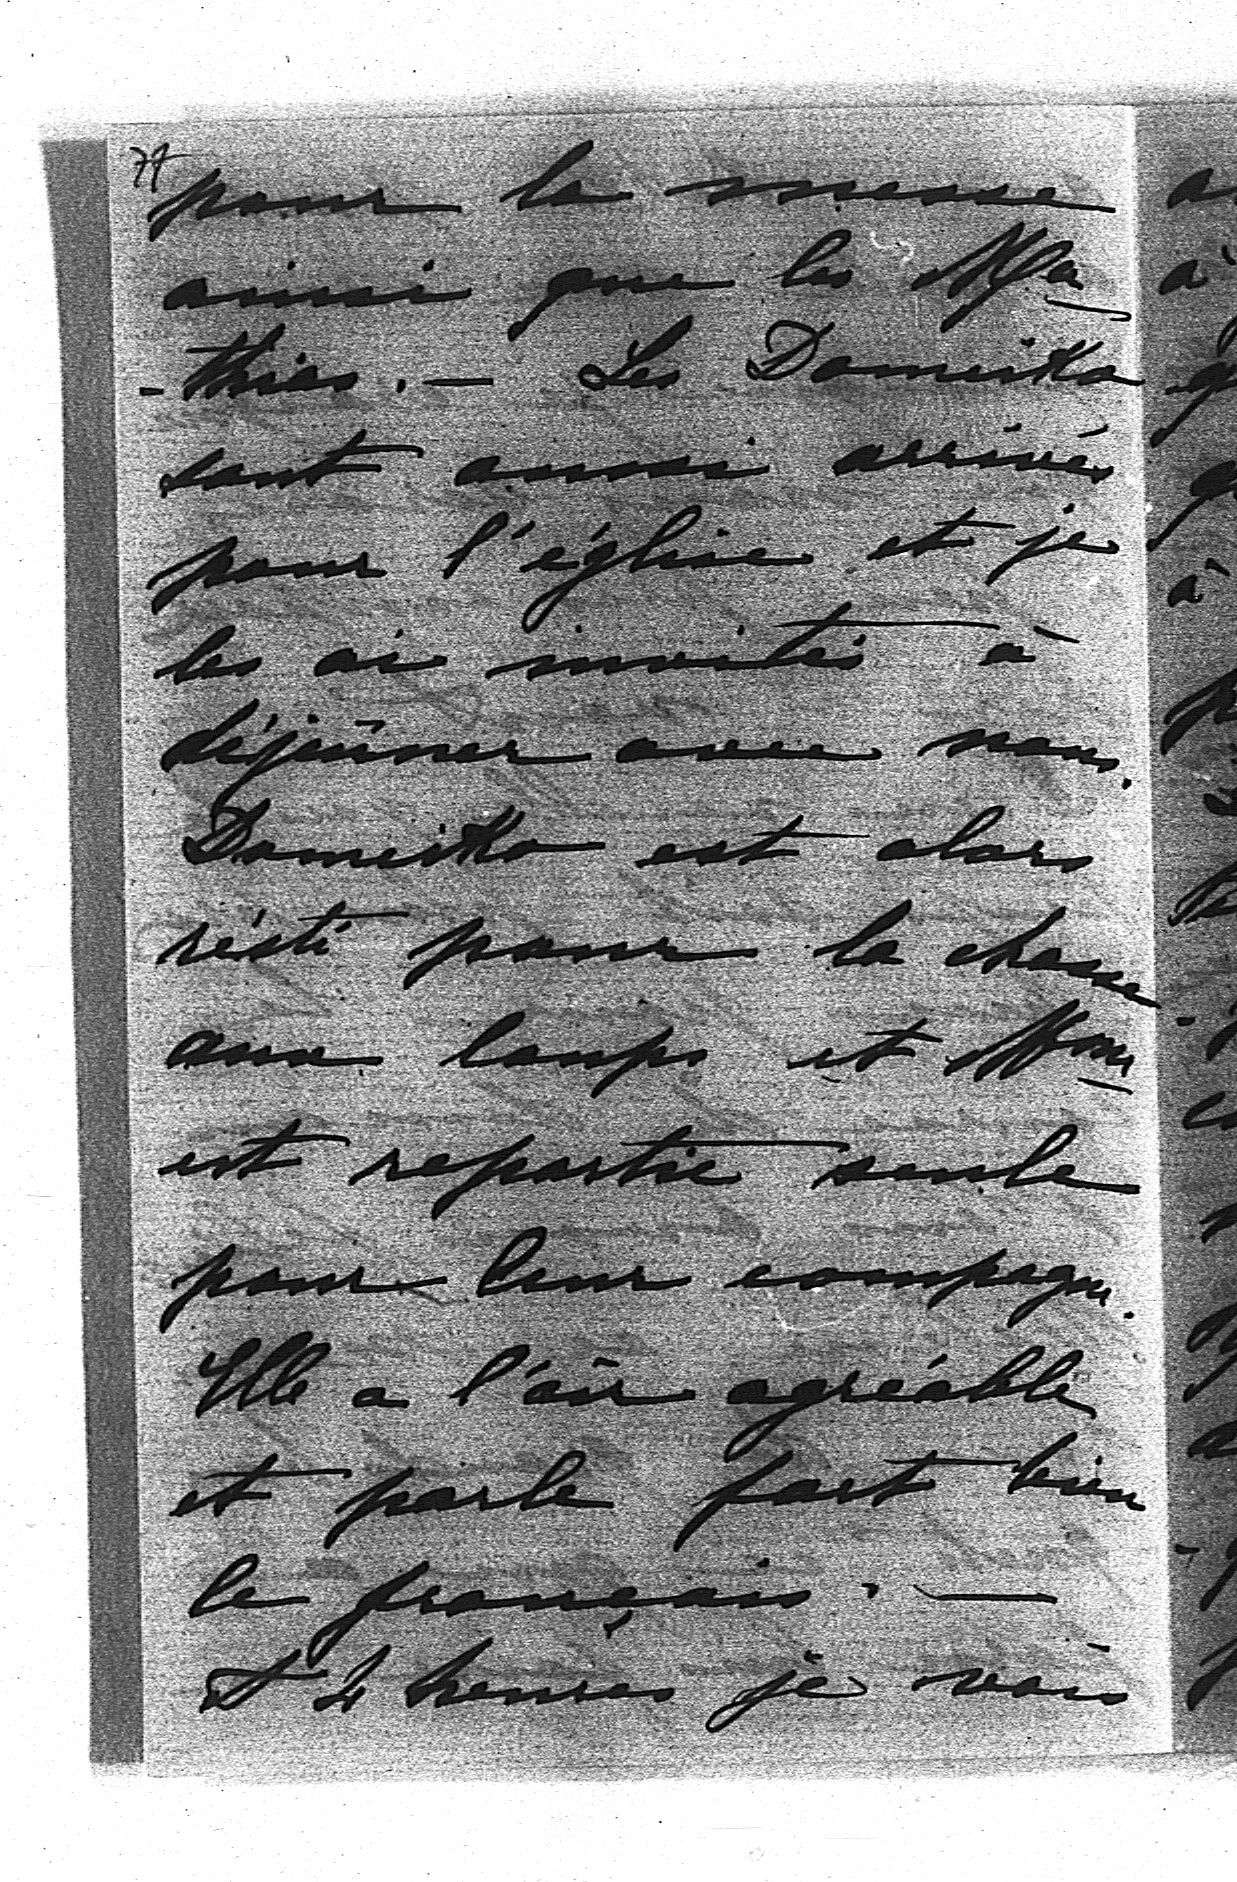 77
pour la messe
ainsi que les Ma
-thies. — Les Domeïko
sont aussi arrivés
pour l'église et je
les ai invités à
déjeûner avec nous.
Domeïko est alors
résté pour la chasse
aux loups et Mme
est repartie seule
pour leur compagne.
Elle a l'air agréable
et parle fort bien
le français. —
A 4 heures je vais